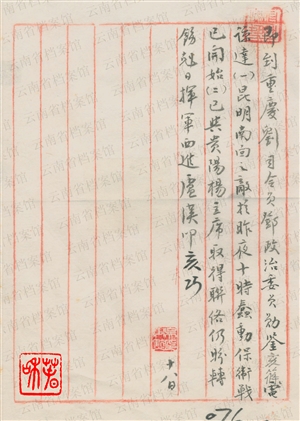 即到重慶劉司令員鄧政治委員勛鑒庭篠電
諒達(一)昆明南向之敵於昨夜十時蠢動保衛戰
已開始(二)已與貴陽楊主席取得聯絡仍盼轉
飭尅日揮軍西進盧漢叩亥巧
十八日
076
云南省档案馆